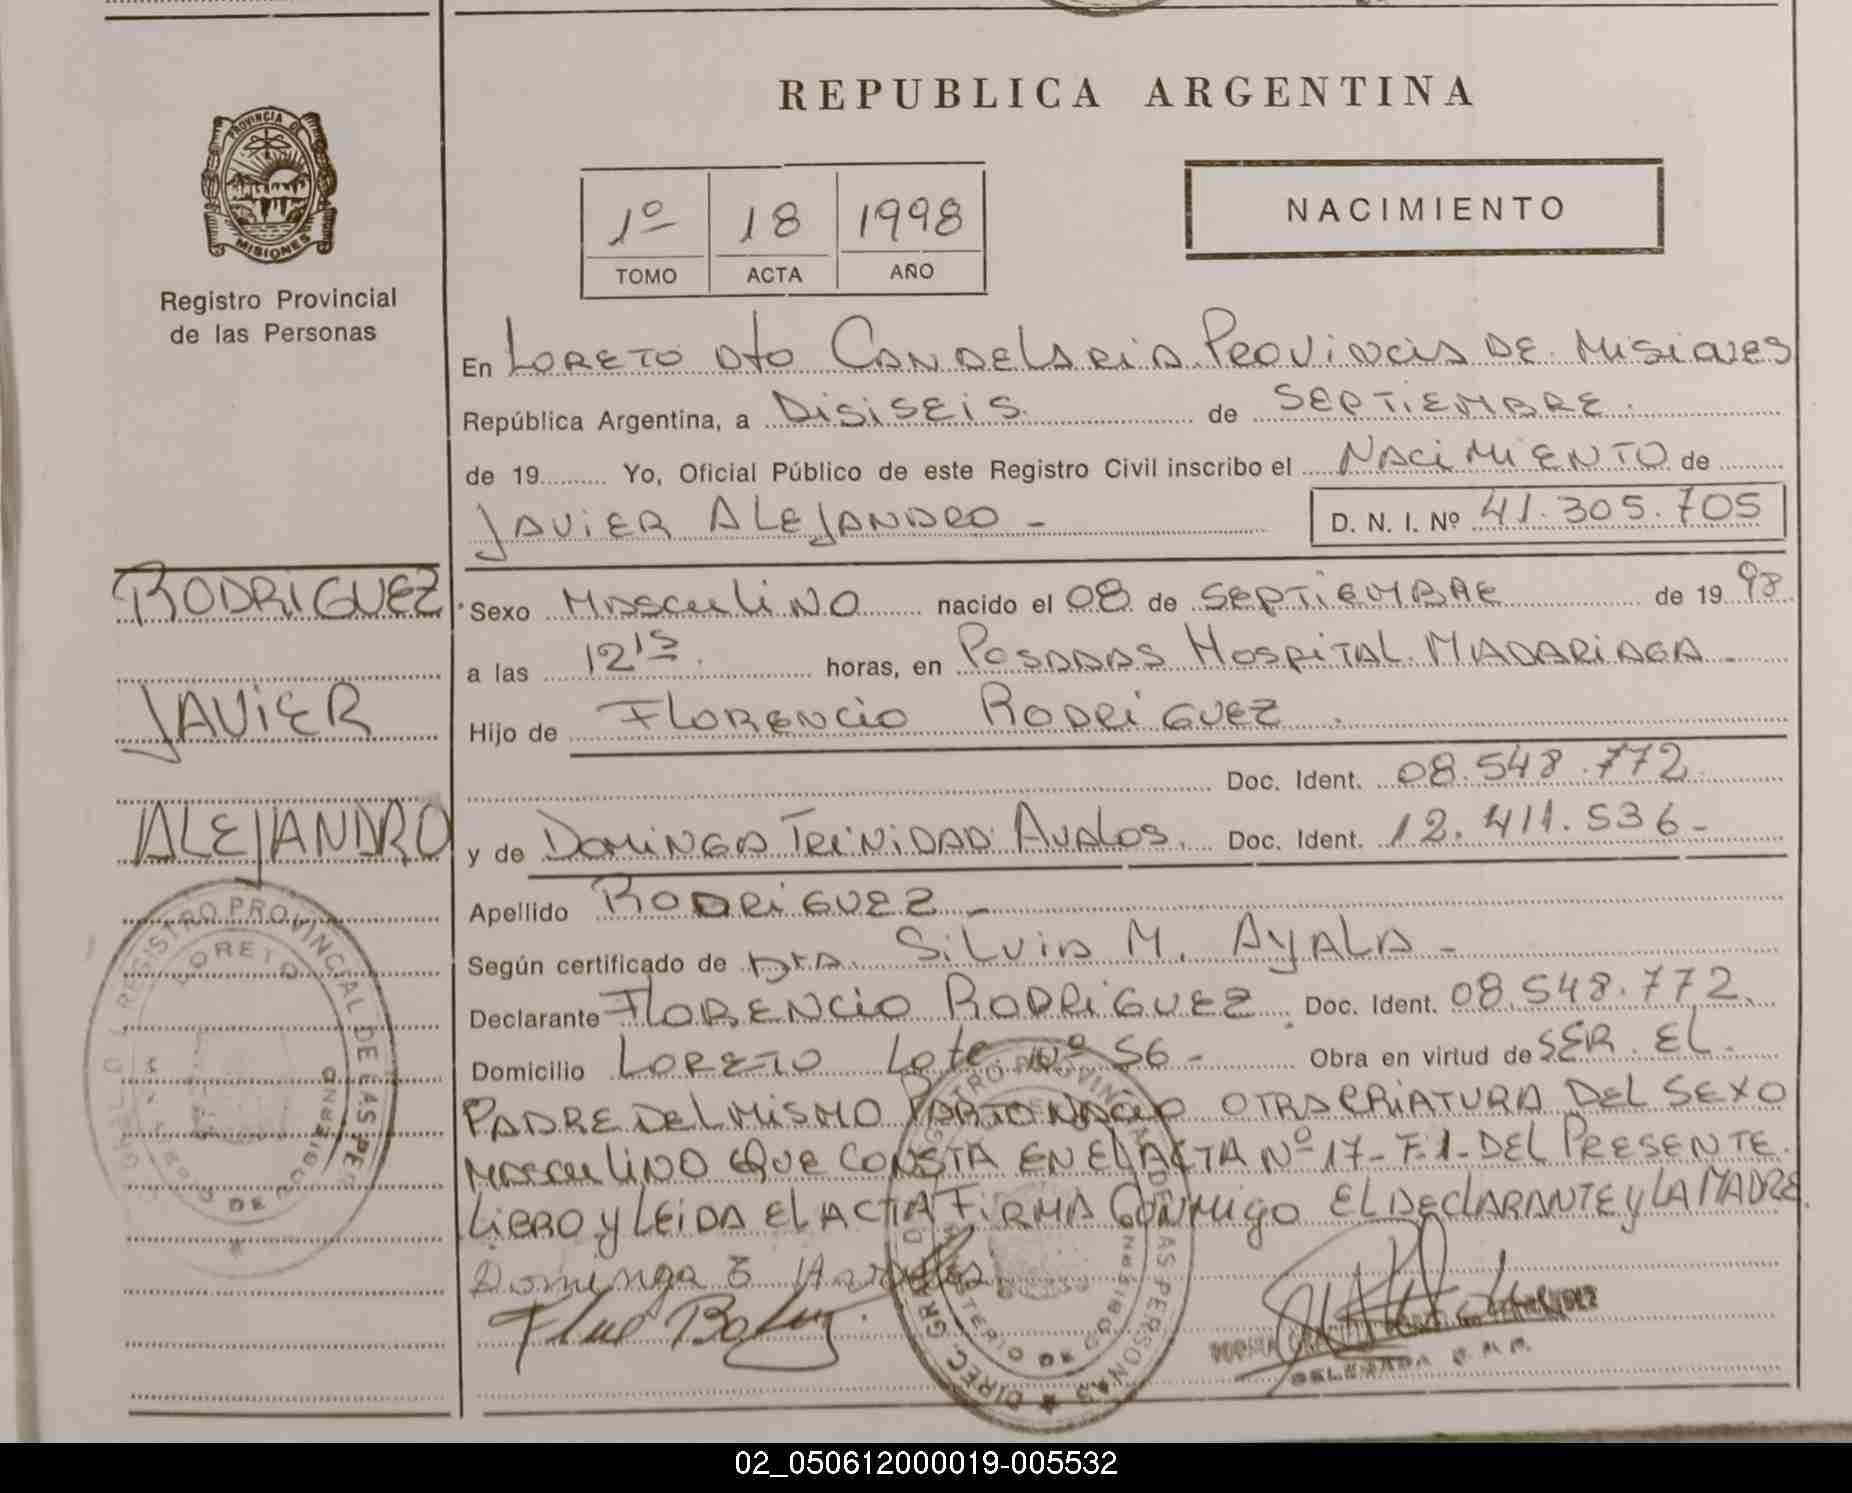 REPUBLICA ARGENTINA
PROVINCIA DE
MISIONES
Registro Provincial
de las Personas
1º 18 1998
TOMO ACTA AÑO
NACIMIENTO
En LORETO Dto CANDELARIA PROVINCIA DE MISIONES
República Argentina, a DISISEIS de SEPTIEMBRE
de 19 Yo, Oficial Público de este Registro Civil inscribo el NACIMIENTO de
JAVIER ALEJANDRO - D. N. I. Nº 41.305.705
RODRIGUEZ
JAVIER
ALEJANDRO
Sexo MASCULINO nacido el 08 de SEPTIEMBRE de 19 98
a las 12 15 horas, en POSADAS HOSPITAL MADARIAGA
Hijo de FLORENCIO RODRIGUEZ
Doc. Ident. 08.548.772
y de DOMINGA TRINIDAD AVALOS. Doc. Ident. 12.411.536-
Apellido RODRIGUEZ -
Según certificado de DrA. SILVIA M. AYALA -
Declarante FLORENCIO RODRIGUEZ Doc. Ident. 08.548.772
Domicilio LORETO Lote Nº 56 - Obra en virtud de SER EL
PADRE DEL MISMO PARTO NACIO OTRA CRIATURA DEL SEXO
MASCULINO QUE CONSTA EN EL ACTA Nº 17-F.1- DEL PRESENTE
LIBRO Y LEIDA EL ACTA FIRMA CONMIGO EL DECLARANTE Y LA MADRE.
Dominga
REGISTRO PROVINCIAL DE LAS PER
LORETO
REGISTRO PROVINCIAL DE LAS PERSONAS
DELEGADA
02_050612000019-005532